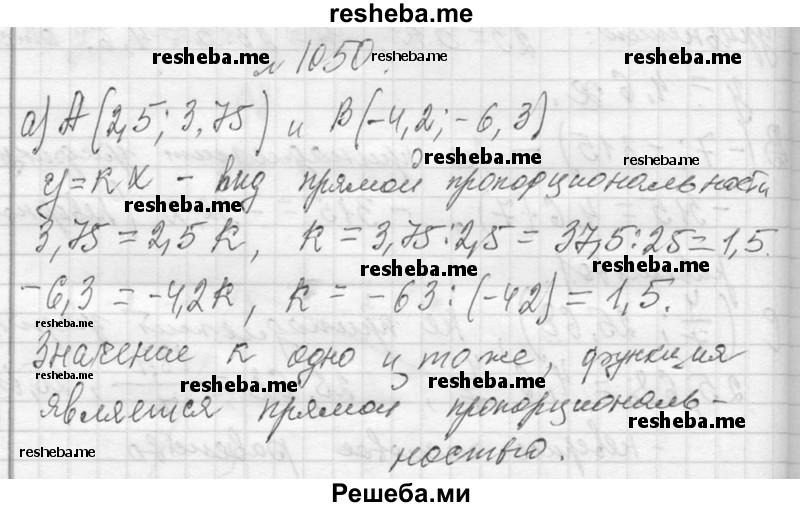 resheba.me
resheba.me
resheba.me
resheba.me
№ 1050.
а) А(2,5; 3,75) и В(-4,2; -6,3)
resheba.me
resheba.me
y = кx - вид прямой пропорциональности
resheba.me
3,75 = 2,5к, к = 3,75:2,5 = 37,5:25 = 1,5.
resheba.me
resheba.me
-6,3 = -4,2к, к = -63:(-42) = 1,5.
resheba.me
Значение к одно и тоже, функция
resheba.me
resheba.me
resheba.me
является прямой пропорциональ-
resheba.me
resheba.me
resheba.me
ностью.
Решеба.ми